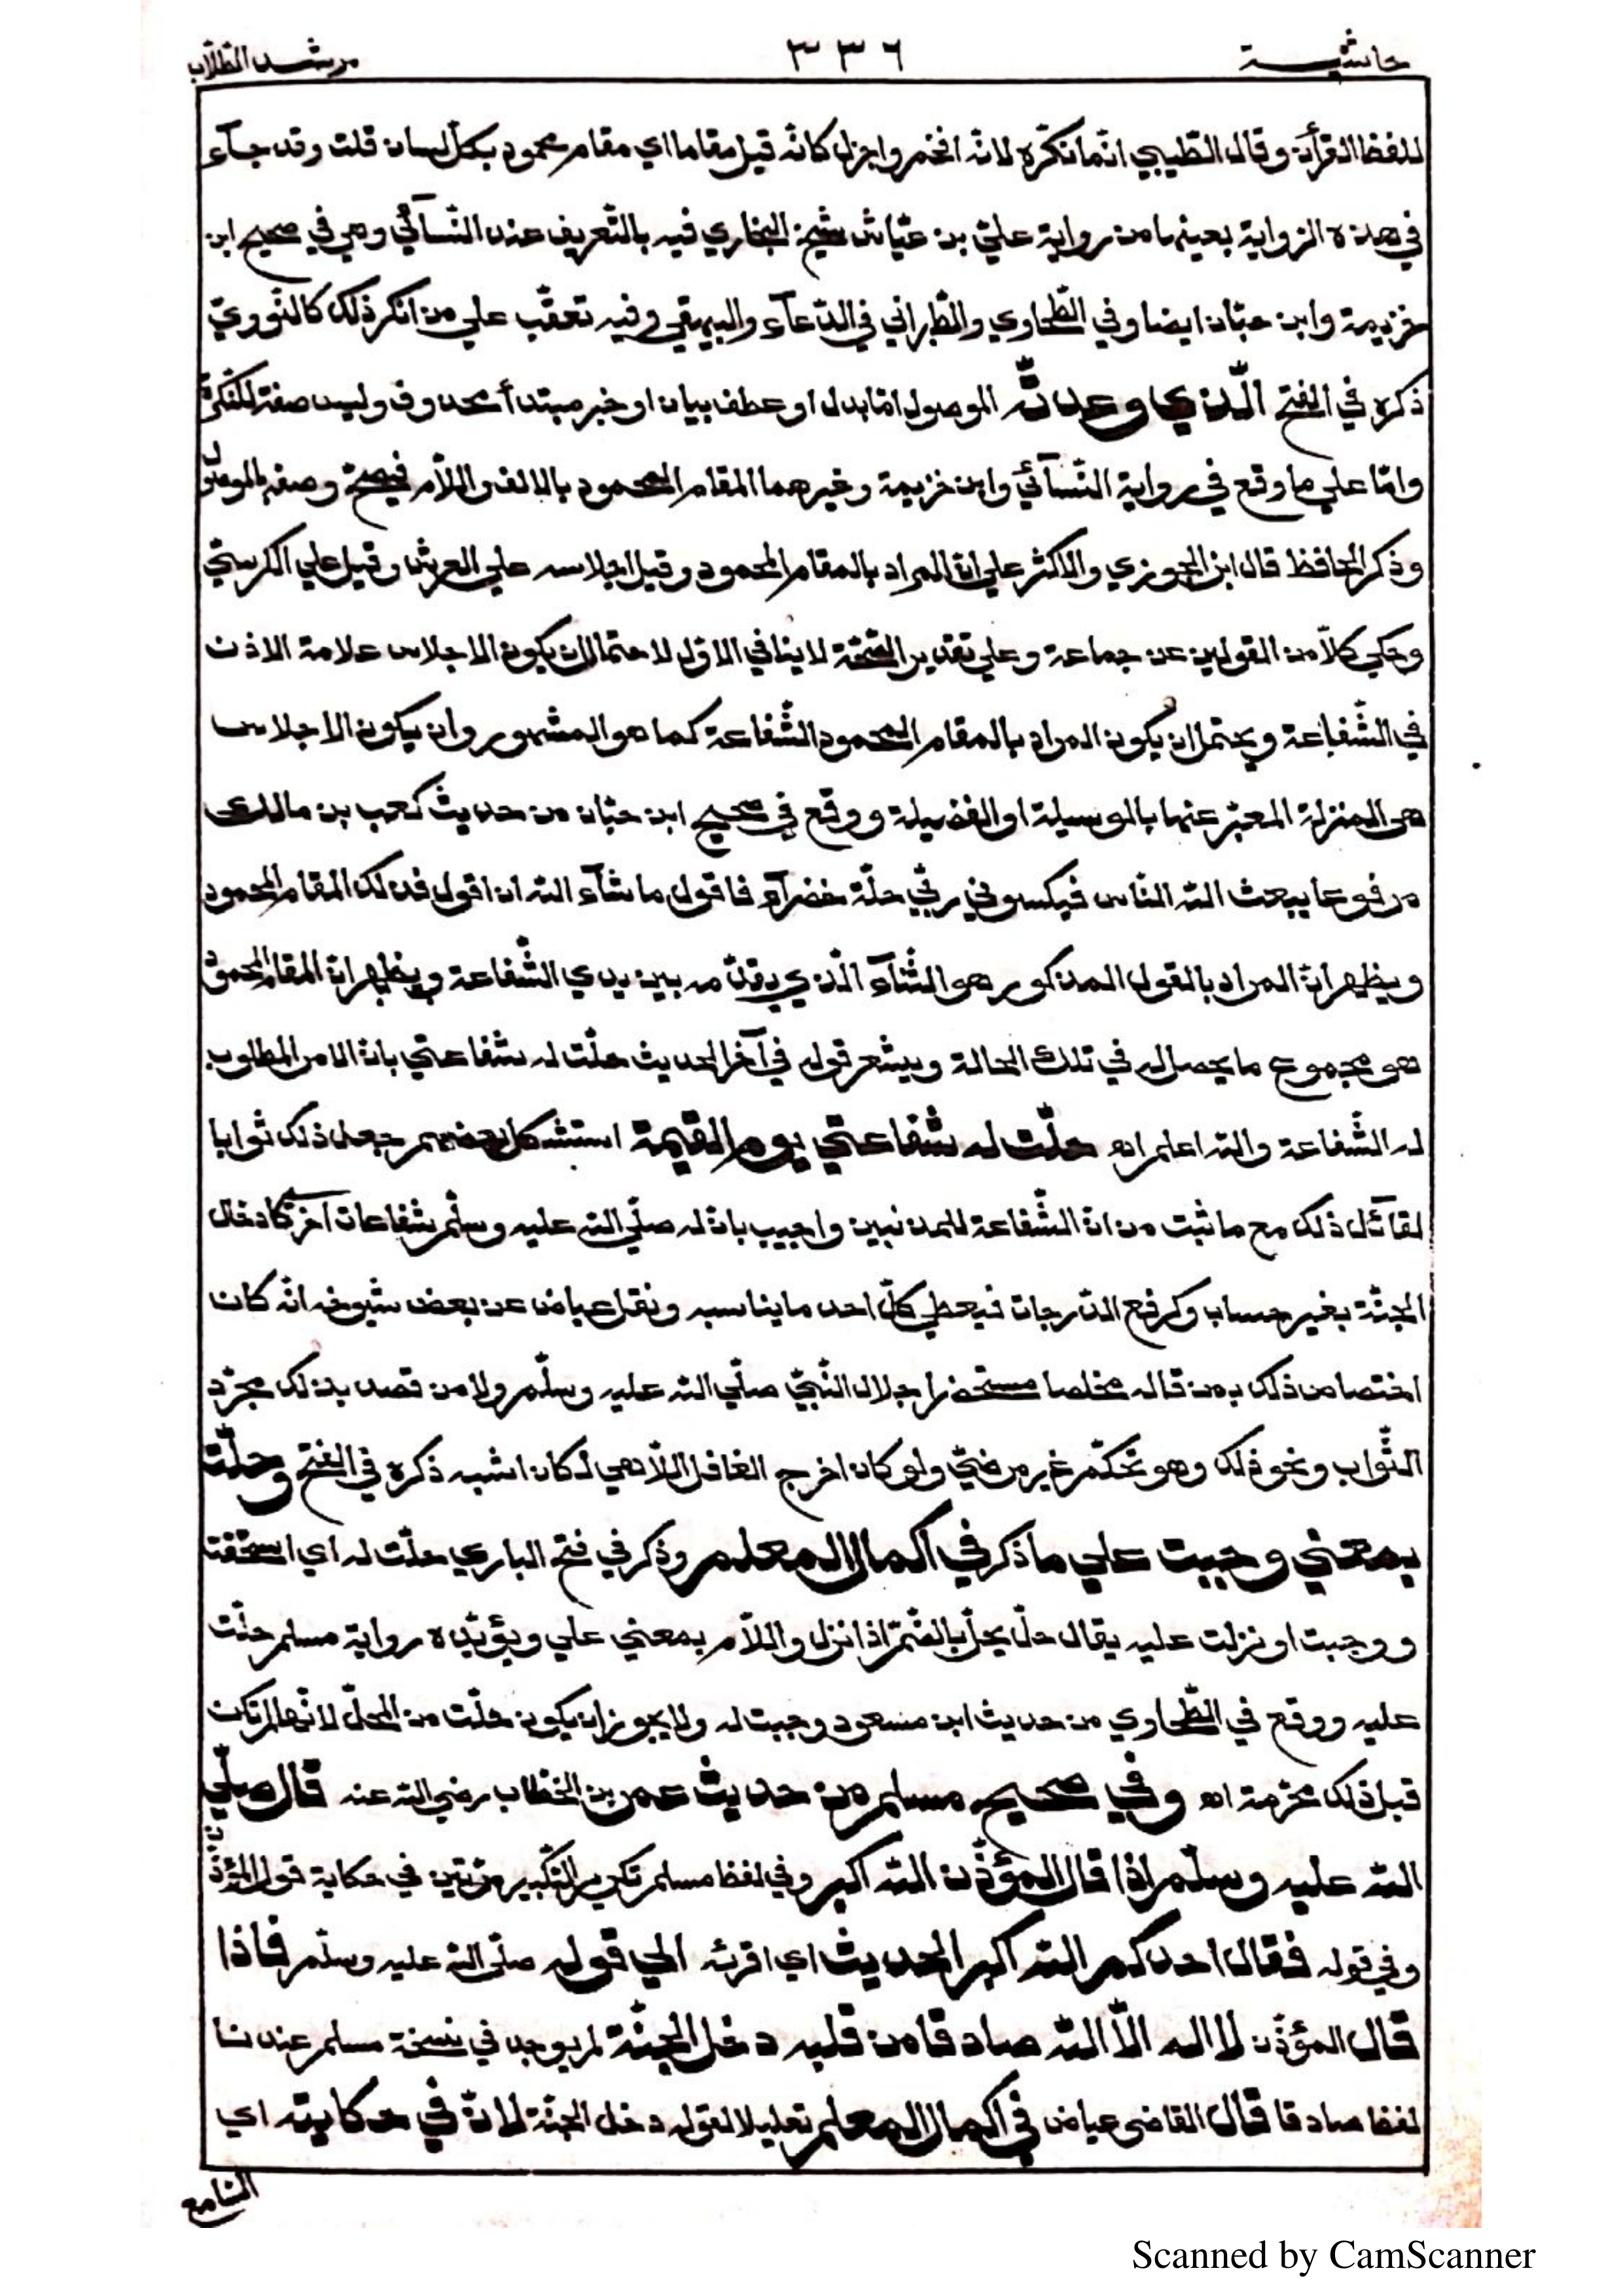 حاشية ٣٣٦ مرشد الطلاب
للفظ القرأن وقال الطّيبي انّما نكّره لانّه افخم واجزل كانّه قيل مقاما اي مقام محمود بكلّ لسان قلت وقد جآء
في هذه الرّواية بعينها من رواية عليّ بن عيّاش شيخ البخاري فيه بالتّعريف عند النّسآئي وهي في صحيح ابن
خزيمة وابن حبّان ايضا وفي الطّحاوي والطّبراني في الدّعآء والبيهقي وفيه تعقّب علي من انكر ذلك كالنّوويّ
ذكره في الفتح الّذي وعدتّه الموصول امّا بدل او عطف بيان او خبر مبتدأ محذوف وليس صفة للنّكرة
وامّا علي ما وقع في رواية النّسآئي وابن خزيمة وغيرهما المقام المحمود بالالف واللّام فيصحّ وصفه بالموصول
وذكر الحافظ قال ابن الجوزي والاكثر علي انّ المراد بالمقام المحمود وقيل اجلاسه علي العرش وقيل علي الكرسيّ
وحكي كلّا من القولين عن جماعة وعلي تقدير الصّحّة لا ينافي الاوّل لاحتمال ان يكون الاجلاس علامة الاذن
في الشّفاعة ويحتمل ان يكون المراد بالمقام المحمود الشّفاعة كما هو المشهور وان يكون الاجلاس
هي المنزلة المعبّر عنها بالوسيلة او الفضيلة ووقع في صحيح ابن حبّان من حديث كعب بن مالك
مرفوعا يبعث اللّه النّاس فيكسوني ربّي حلّة خضرآء فاقول ما شآء اللّه ان اقول فذلك المقام المحمود
ويظهر انّ المراد بالقول المذكور هو الثّنآء الّذي يقدّمه بين يدي الشّفاعة ويظهر انّ المقام المحمود
هو مجموع ما يحصل له في تلك الحالة ويشعر قوله في آخر الحديث حلّت له شفاعتي بانّ الامر المطلوب
له الشّفاعة واللّه اعلم اه حلّت له شفاعتي يوم القيمة استشكل بعضهم جعل ذلك ثوابا
لقآئل ذلك مع ما ثبت من انّ الشّفاعة للمذنبين واجيب بانّ له صلّي اللّه عليه وسلّم شفاعات اخري كادخال
الجنّة بغير حساب وكرفع الدّرجات فيعطي كلّ احد ما يناسبه ونقل عياض عن بعض شيوخه انّه كان
اختصاص ذلك بمن قاله مخلصا مستحضرا جلال النّبيّ صلّي اللّه عليه وسلّم ولا من قصد بذلك مجرّد
الثّواب ونحو ذلك وهو تحكّم غير مرضيّ ولو كان اخرج الغافل اللّاهي لكان اشبه ذكره في الفتح وحلّت
بمعني وجبت علي ما ذكر في اكمال المعلم وذكر في فتح الباري حلّت له اي استحقّت
ووجبت او نزلت عليه يقال حلّ يحلّ بالضّمّ اذا نزل واللّام بمعني علي ويؤيّده رواية مسلم حلّت
عليه ووقع في الطّحاوي من حديث ابن مسعود وجبت له ولا يجوز ان يكون حلّت من الحلّ لانّها لم تكن
قبل ذلك محرّمة اه وفي صحيح مسلم من حديث عمر بن الخطاب رضي اللّه عنه قال صلّي
اللّه عليه وسلّم اذا قال المؤذّن اللّه اكبر وفي لفظ مسلم تكرير التّكبير مرّتين في حكاية قول المؤذّن
وفي قوله فقال احدكم اللّه اكبر الحديث اي اقرئه الي قوله صلّي اللّه عليه وسلّم فاذا
قال المؤذّن لا اله الّا اللّه صادقا من قلبه دخل الجنّة لم يوجد في نسخة مسلم عندنا
لفظ صادقا قال القاضي عياض في اكمال المعلم تعليلا لقوله دخل الجنّة لانّ في حكايته اي
السّامع
Scanned by CamScanner